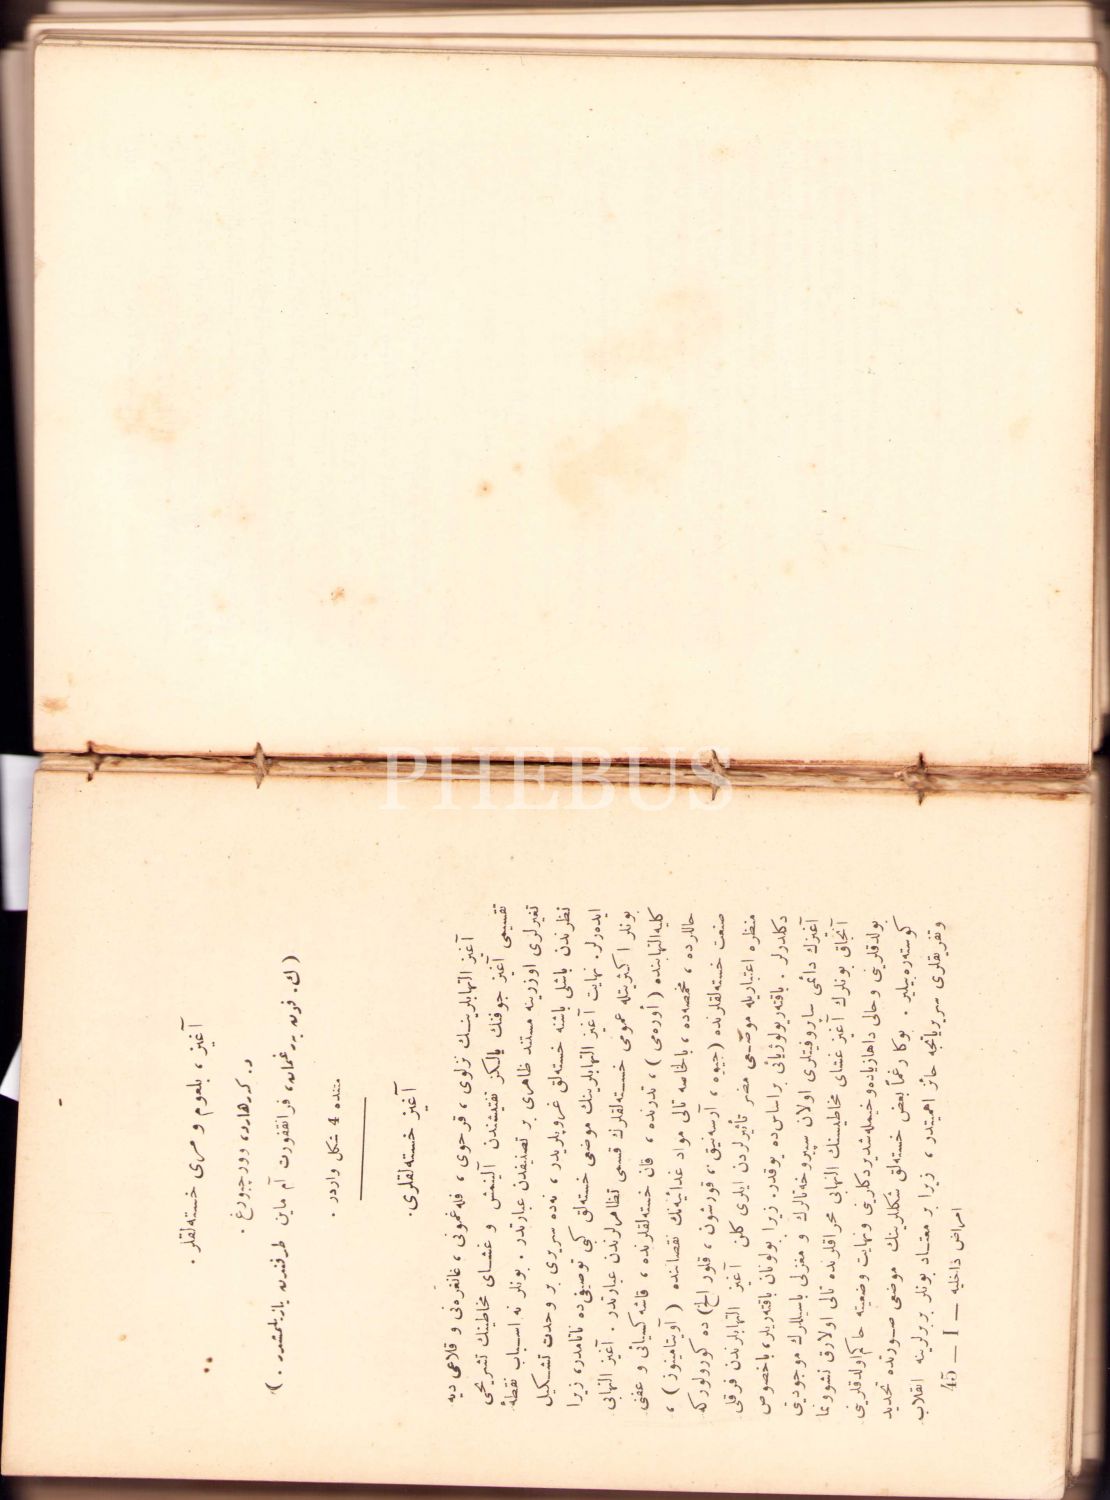 آغیز ، بلعوم و مری خسته‌لقلر .
د. کررهارد، وورچبورغ .
(ك. فون برغمان، فرانقفورت آم ماین طرفندن یازیلمشدر.)
متنده 4 شكل واردر .
آغیز خسته‌لقلری.
آغیز التهابلرینك نزلوی ، قرحوی ، فلغمونی ، غانغره‌نی و قلاعی دیه
تقسیمی آغیز جوفنك یالكز تفتیشندن آلینمش و غشای مخاطینك تشریحی
تغیرلری اوزرینه مستند ظاهری بر تصنیفدن عبارتدر . بونلر نه اسباب نقطهٔ
نظرندن باشلی باشنه خسته‌لق غروپلریدر ، نه‌ده سریری بر وحدت تشكیل
ایده‌رلر. نهایت آغیز التهابلرینك موضعی خسته‌لق كبی توصیفی ده ناتامدر، زیرا
بونلر اكثریتله عمومی خسته‌لقلرك قسمی تظاهرلرندن عبارتدر . آغیز التهابی
كلیه التهابنده (اوره‌می) ، تدرنده ، قان خسته‌لقلرنده ، قاشه‌كسیائی و عفنی
حاللرده ، مخمصه‌ده ، بالخاصه تالی مواد غدائیه‌نك نقصاننده (آویتامینوز) ،
صنعت خسته‌لقلرنده (جیوه ، آرسه‌نیق ، قورشون ، قلور الخ) ده كورولور كه
منظره اعتباریله موضعی مضر تأثیرلردن ایلری كلن آغیز التهابلرندن فرقلی
دكلدرلر . باقته‌ریولوژیائی براساس ده یوقدر. زیرا بولونان باقته‌ریلر، باخصوص
آغیزك دائمی ساپروفیتلری اولان سپیروخه‌تالرك و مغزلی باسیللرك موجودیتی
آنجاق بونلرك آغیز غشای مخاطیسنك التهابی محراقلرنده تالی اولارق نشوونما
بولدقلرینی وحالی داهازیاده‌وخیمله‌شدیردكلرینی ونهایت وضعیته حاكم‌اولدقلرینی
كوستره‌بیلیر . بوكا رغماً بعض خسته‌لق شكللرینك موضعی صورتده تحدید
وتفریقلری سریریاتجه حائز اهمیتدر ، زیرا بر معتاد بونلر بربرلرینه انقلاب
امراض داخلیه — I — 45
PHEBUS